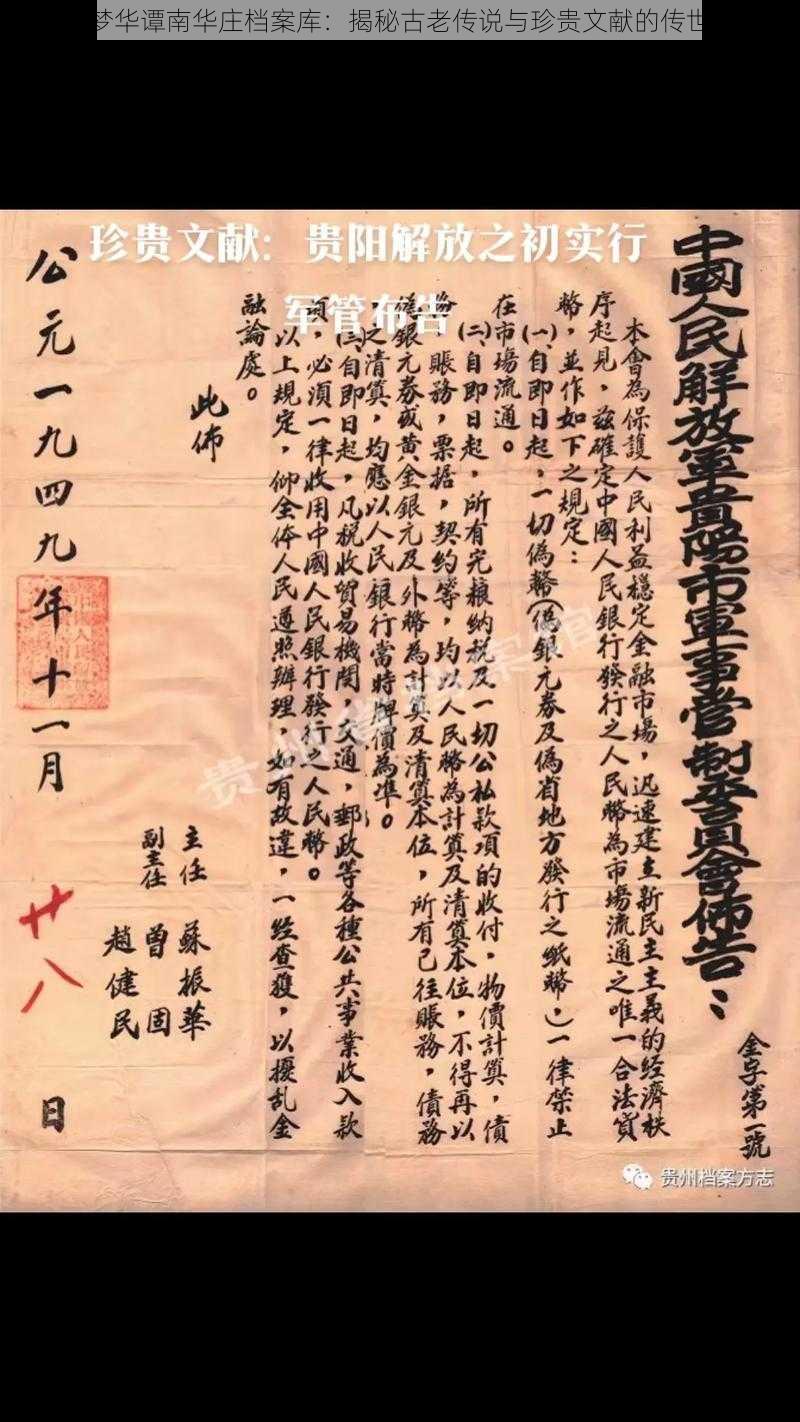 梦华谭南华庄档案库：揭秘古老传说与珍贵文献的传世
珍贵文献：贵阳解放之初实行
军管布告
中國人民解放軍貴陽市軍事管制委員會佈告：
金字第一號
本會為保護人民利益穩定金融市場，迅速建立新民主主義的经濟秩
序起見，兹確定中國人民銀行發行之人民幣為市場流通之唯一合法貨
幣，並作如下之規定：
㈠自即日起，一切偽幣（偽銀元券及偽省地方發行之纸幣，）一律禁止
在市場流通。
㈡自即日起，所有完粮納税及一切公私款項的收付，物價計算，債
務，賬務，票据，契约等，均以人民幣為計算及清算本位，不得再以
偽銀元券或黄金銀元及外幣為計算及清算本位，所有已往賬務，債務
之清算，均應以人民銀行當時牌價為準。
㈢自即日起，凡税收貿易機関，交通，郵政等各種公共事業收入款
項，必須一律收用中國人民銀行發行之人民幣。
以上規定，仰全体人民遵照辦理，如有故違，一经查獲，以擾乱金
融論處。
此佈
主任 蘇振華
副主任 曾固
趙健民
公元一九四九年十一月廿八日
贵州
档案馆
贵州档案方志